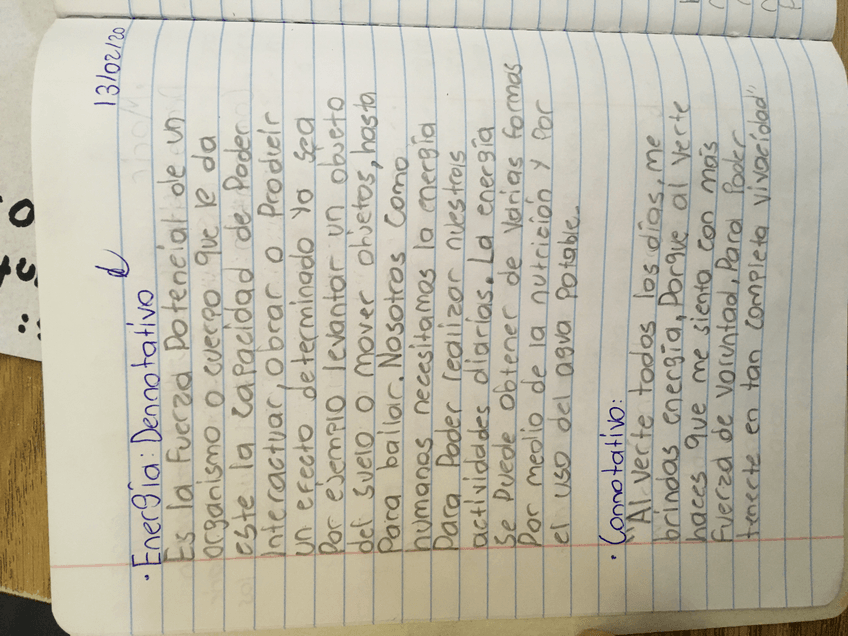 13/02/20
• Energía: Dennotativo
Es la fuerza potencial de un
organismo o cuerpo que le da
este la capacidad de poder
interactuar, obrar o producir
un efecto determinado ya sea
por ejemplo levantar un objeto
del suelo o mover objetos, hasta
para bailar. Nosotros como
humanos necesitamos la energía
para poder realizar nuestras
actividades diarias. La energía
se puede obtener de varias formas
por medio de la nutrición y por
el uso del agua potable.
• Connotativo:
"Al verte todos los días, me
brindas energía, porque al verte
haces que me sienta con más
fuerza de voluntad, para poder
tenerte en tan completa vivacidad"